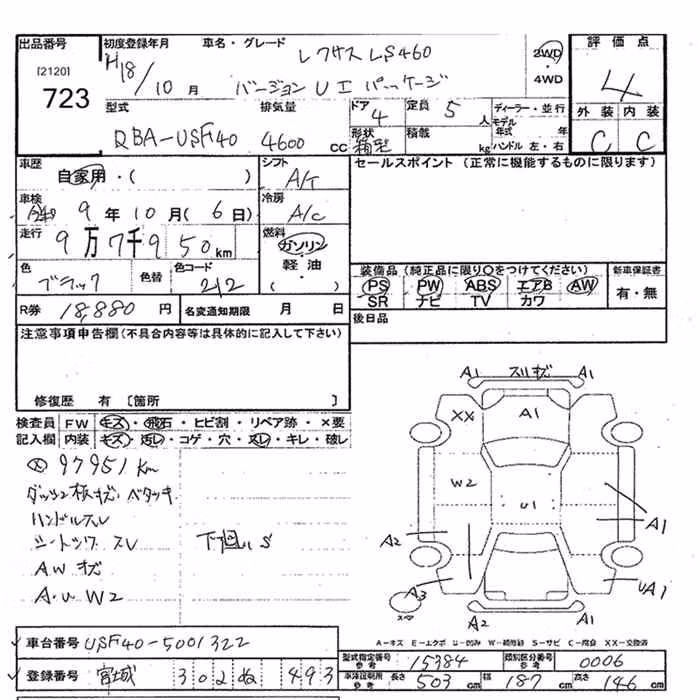 出品番号
[2120]
723
初度登録年月 車名・グレード 評価点
H18/10月 レクサス LS460 2WD・4WD 4
バージョンUIパッケージ
型式 排気量 ドア 定員 ディーラー・並行
DBA-USF40 4600cc 4 5人 モデル年式 年
形状 積載 ハンドル 左・右
箱型 kg
外装 内装
C C
車歴 シフト セールスポイント (正常に機能するものに限ります)
自家用・( ) A/T
車検 冷房
9年10月(6日) A/C
走行 燃料
9万7千950km ガソリン・軽油・( )
色 色替 色コード
ブラック 212
装備品 (純正品に限り○をつけてください) 新車保証書
PS PW ABS エアB AW 有・無
SR ナビ TV カワ
R券 18,880円 名変通知期限 月 日
後日品
注意事項申告欄(不具合内容等は具体的に記入して下さい)
修復歴 有 〔箇所 〕
検査員 FW キズ・飛石・ヒビ割・リペア跡・×要
記入欄 内装 キズ・汚レ・コゲ・穴・スレ・キレ・破レ
97951km
ダッシュ板キズ・ベタツキ
ハンドルスレ
シートシワ スレ 下回りS
AWキズ
A・U W2
A1 スリキズ A1
XX A1
W2 U1
A2 A1
A3 UA1
A2 A1
A-キズ E-エクボ U-凹み W-補修跡 S-サビ C-腐食 XX-交換済
車台番号 USF40-5001322
登録番号 宮城 302 ぬ 493
型式指定番号 参考 15384 類別区分番号 参考 0006
車体証明用 参考 長さ 503cm 幅 187cm 高さ 146cm